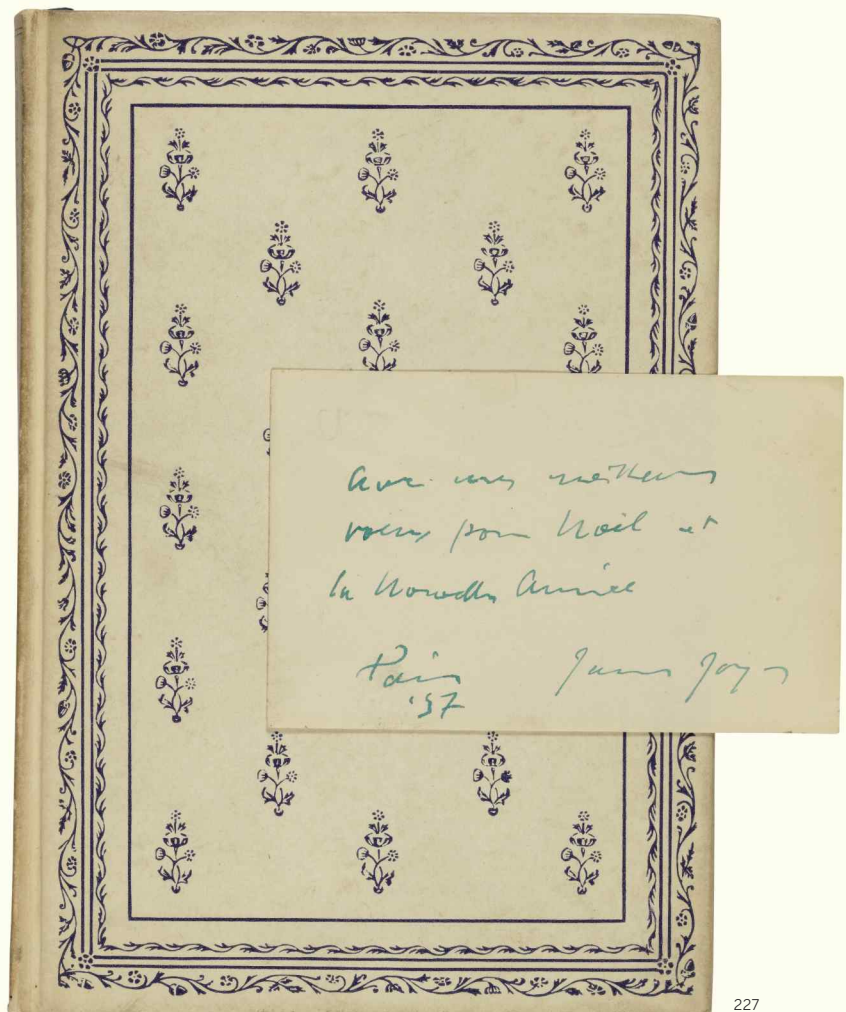 avec mes meilleurs
voeux pour Noël et
la Nouvelle Année
Paris James Joyce
'37
227